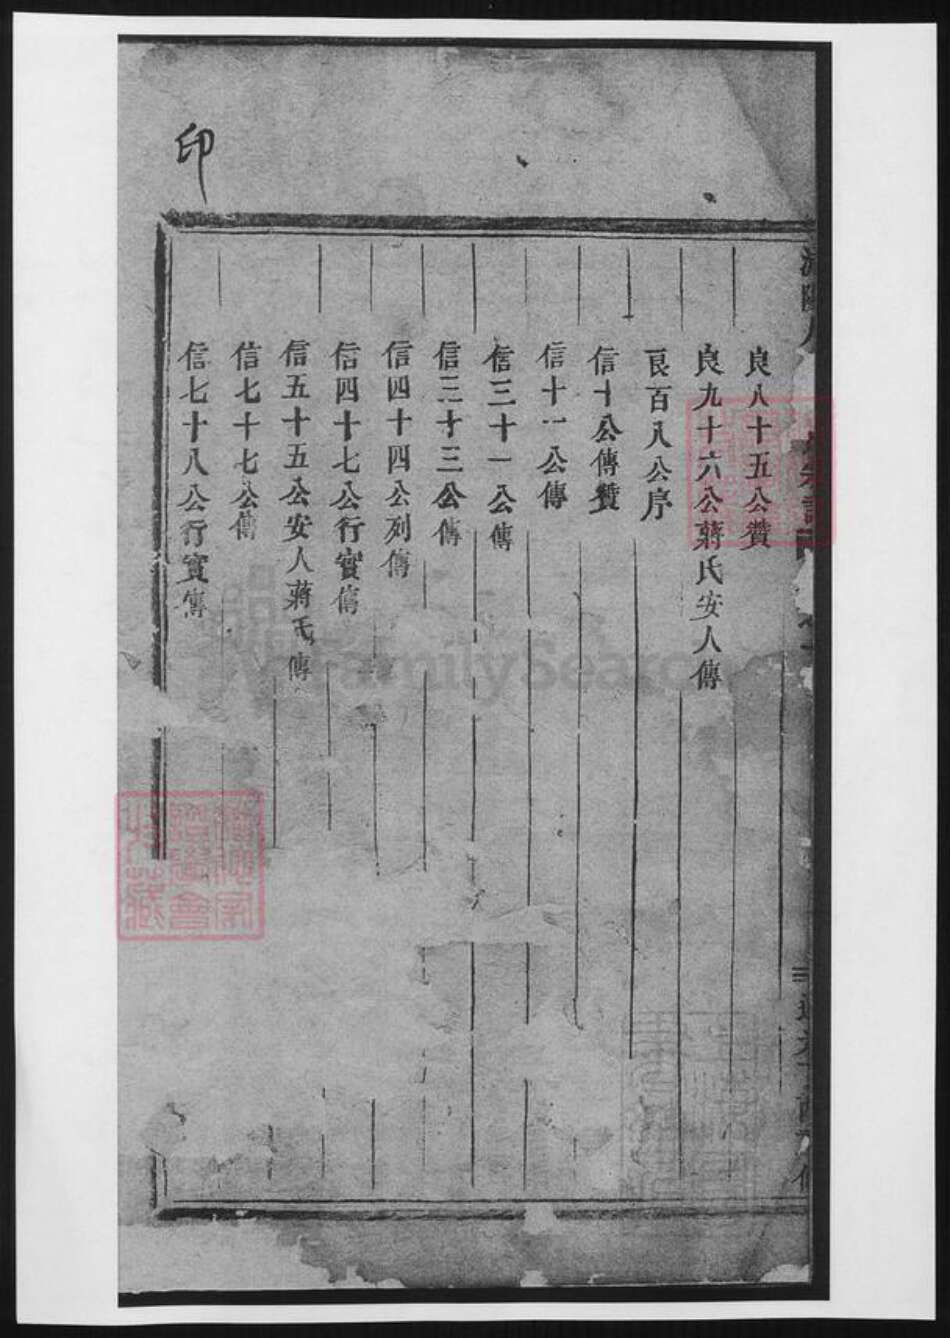 良八十五公贊
良九十六公蔣氏安人傳
良百八公序
信十公傳贊
信十一公傳
信三十一公傳
信三十三公傳
信四十四公列傳
信四十七公行實傳
信五十五公安人蔣氏傳
信七十七公傳
信七十八公行實傳
印
FamilySearch